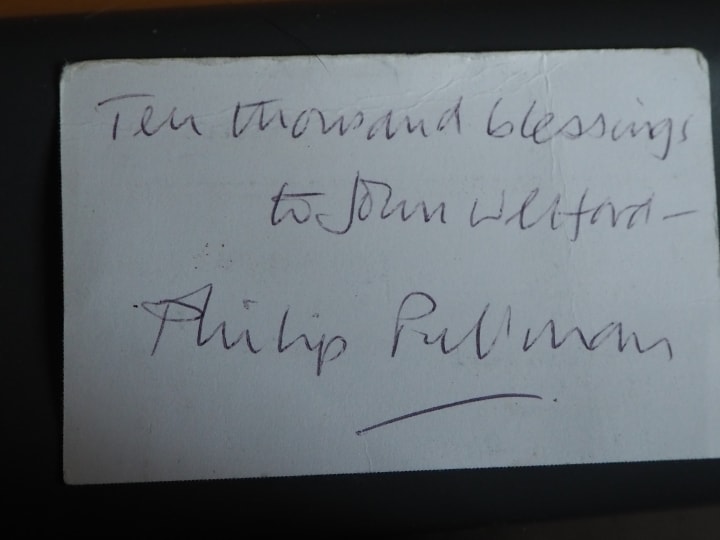 Ten thousand blessings
to John Welford —
Philip Pullman